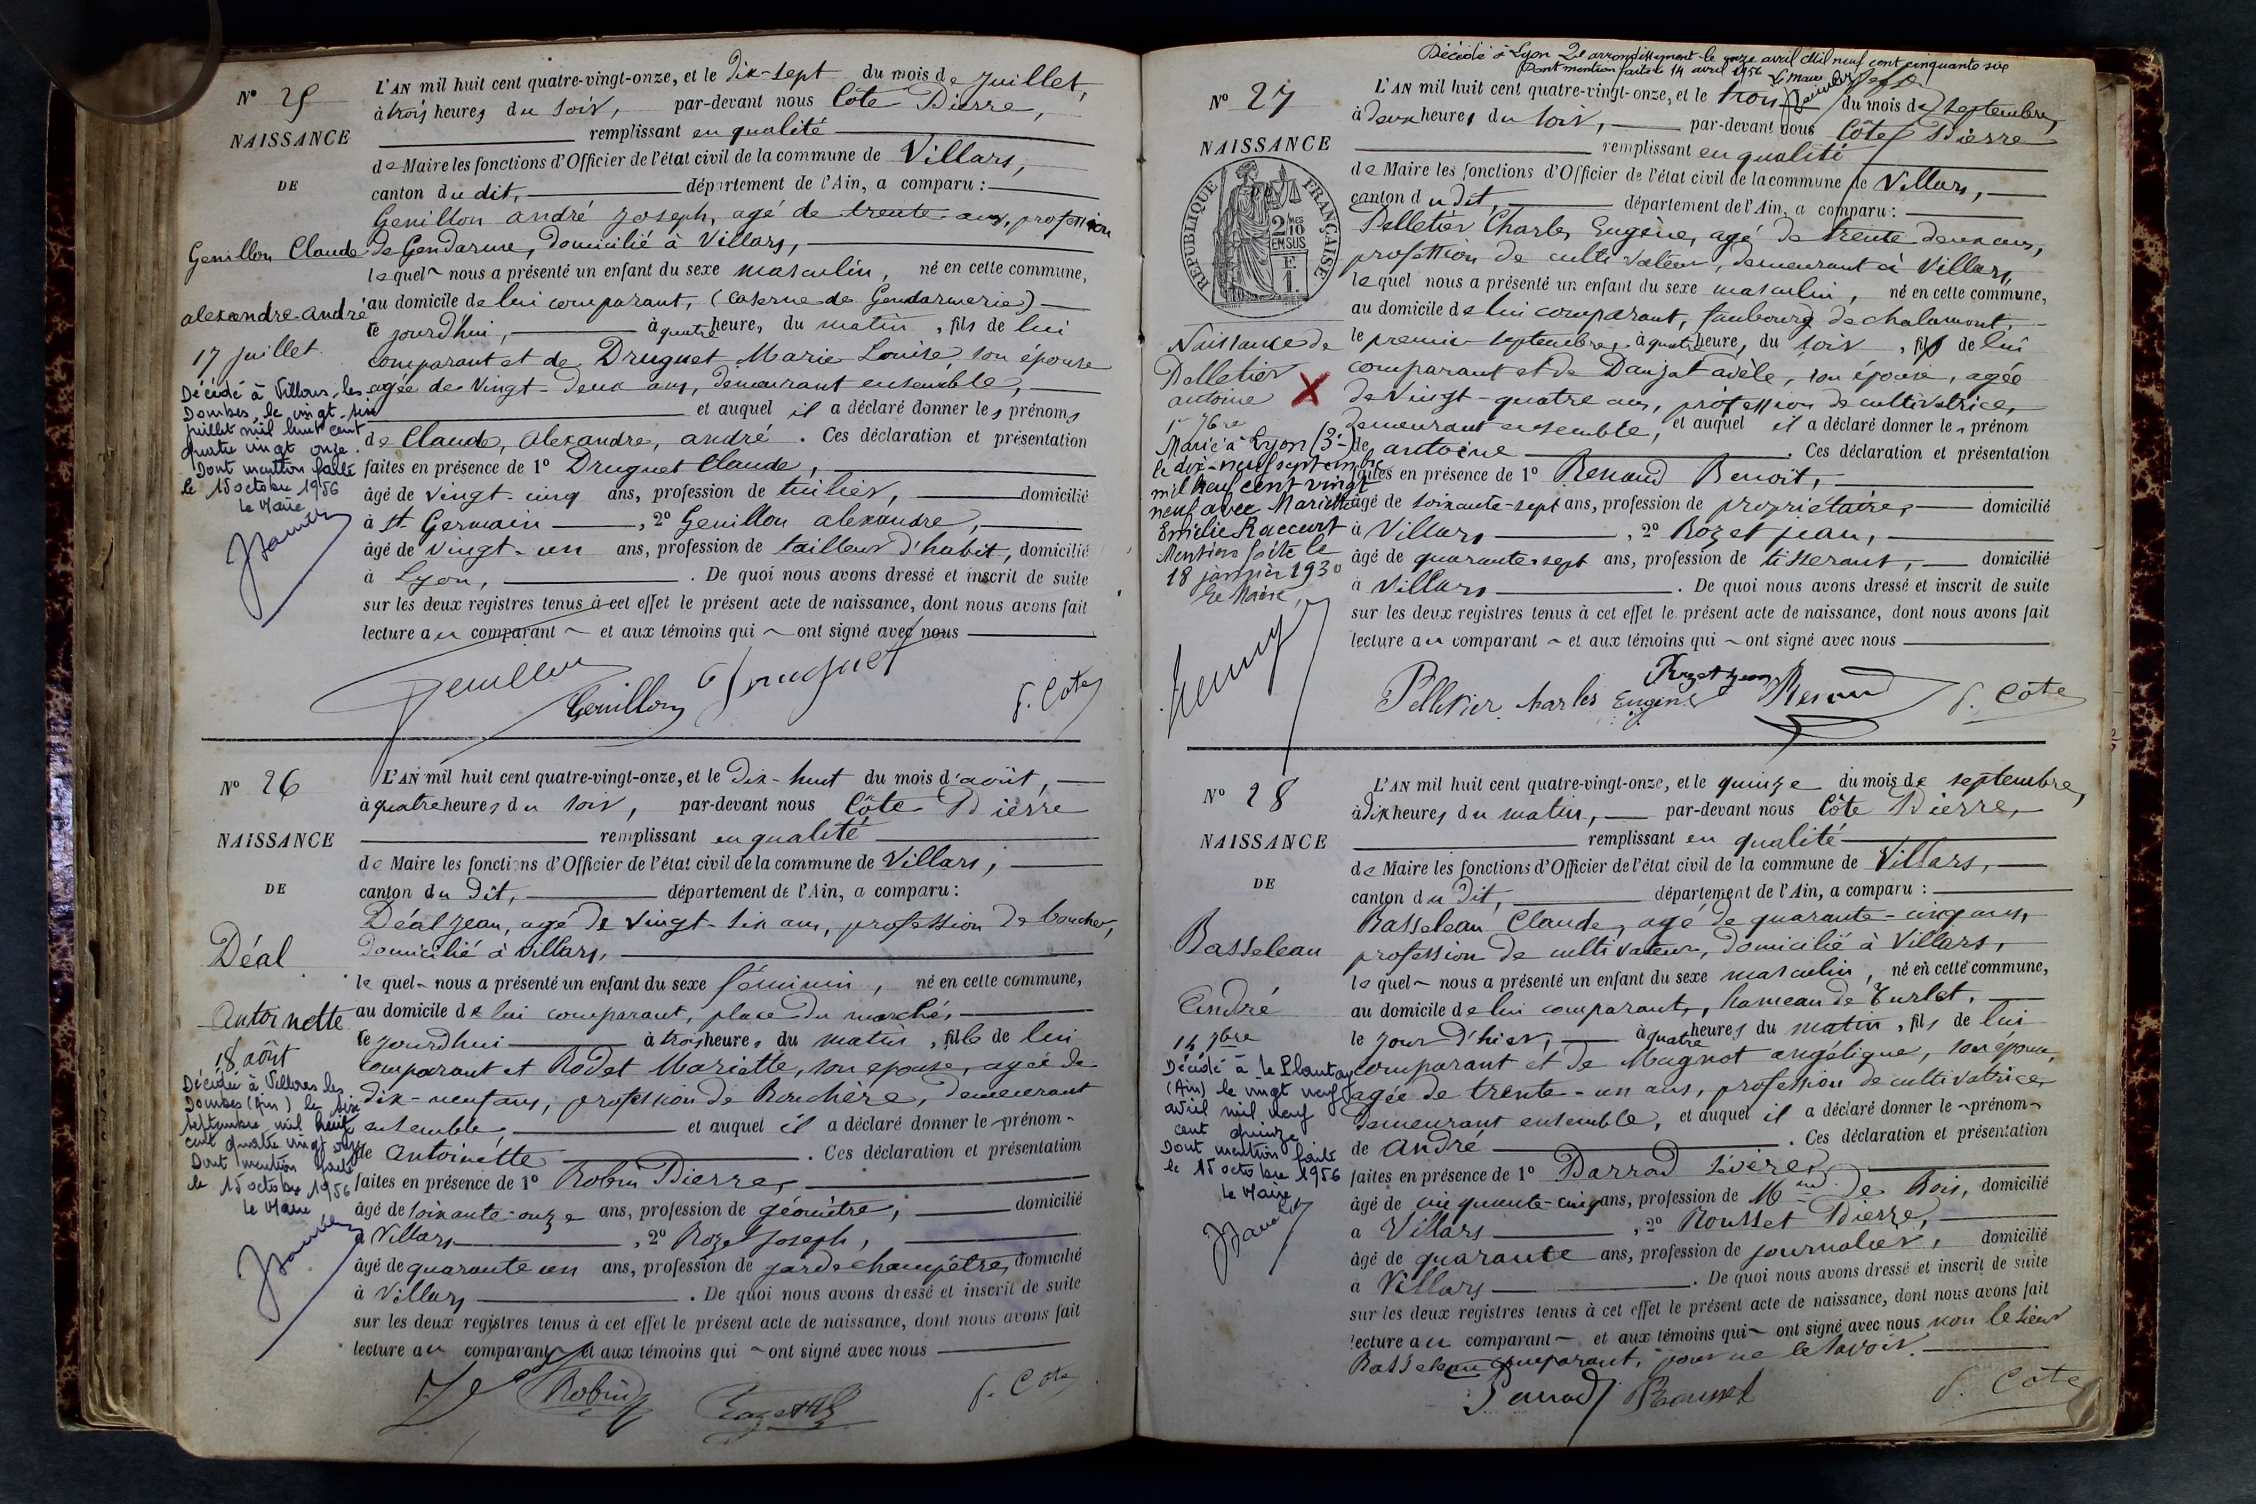 N° 25
NAISSANCE
DE
Genillon Claude
alexandre andré
17 juillet
Décédé à Villars-les-
Dombes, le vingt-six
juillet mil huit cent
quatre vingt onze.
Dont mention faite
le 15 octobre 1956
Le Maire
L'AN mil huit cent quatre-vingt-onze, et le dix-sept du mois de juillet,
à trois heures du soir, par-devant nous Côte Pierre,
remplissant en qualité
de Maire les fonctions d'Officier de l'état civil de la commune de Villars,
canton du dit, département de l'Ain, a comparu :
Genillon andré joseph, agé de trente ans, profession
de Gendarme, domicilié à Villars,
lequel nous a présenté un enfant du sexe masculin, né en cette commune,
au domicile de lui comparant, (caserne de Gendarmerie)
le jourd'hui, à quatre heures du matin, fils de lui
comparant et de Druguet Marie Louise, son épouse
agée de vingt-deux ans, demeurant ensemble,
et auquel il a déclaré donner les prénoms
de Claude, alexandre, andré. Ces déclaration et présentation
faites en présence de 1° Druguet Claude,
âgé de vingt-cinq ans, profession de tuilier, domicilié
à St Germain, 2° Genillon alexandre,
âgé de vingt-un ans, profession de tailleur d'habit, domicilié
à Lyon, . De quoi nous avons dressé et inscrit de suite
sur les deux registres tenus à cet effet le présent acte de naissance, dont nous avons fait
lecture au comparant et aux témoins qui ont signé avec nous
Genillon Genillon Druguet P. Côte
N° 26
NAISSANCE
DE
Déal
Antoinette
18 août
Décédée à Villars les
Dombes (Ain) le six
septembre mil huit
cent quatre vingt onze
Dont mention faite
le 15 octobre 1956
Le Maire
L'AN mil huit cent quatre-vingt-onze, et le dix-huit du mois d'août,
à quatre heures du soir, par-devant nous Côte Pierre
remplissant en qualité
de Maire les fonctions d'Officier de l'état civil de la commune de Villars,
canton du dit, département de l'Ain, a comparu :
Déal jean, agé de vingt-six ans, profession de boucher,
domicilié à Villars,
lequel nous a présenté un enfant du sexe féminin, né en cette commune,
au domicile de lui comparant, place du marché,
le jourd'hui à trois heures du matin, fille de lui
comparant et Rodet Mariette, son epouse, agée de
dix-neuf ans, profession de Bouchère, demeurant
ensemble, et auquel il a déclaré donner le prénom
de Antoinette . Ces déclaration et présentation
faites en présence de 1° Robin Pierre,
âgé de soixante-onze ans, profession de géomètre, domicilié
à Villars, 2° Rozet Joseph,
âgé de quarante un ans, profession de garde champêtre, domicilié
à Villars . De quoi nous avons dressé et inscrit de suite
sur les deux registres tenus à cet effet le présent acte de naissance, dont nous avons fait
lecture au comparant et aux témoins qui ont signé avec nous
Robin P. Côte
Décédé à Lyon 2e arrondissement le onze avril Mil neuf cent cinquante six
Dont mention faite le 14 avril 1956 Le Maire
N° 27
NAISSANCE
RÉPUBLIQUE FRANÇAISE
2/10 MES
EN SUS
F.
1.
Naissance de
Pelletier
antoine X
1er 7bre
Marié à Lyon (3e)
le dix-neuf septembre
mil neuf cent vingt
neuf avec Mariette
Emilie Raccurt
Mention faite le
18 janvier 1930
Le Maire,
L'AN mil huit cent quatre-vingt-onze, et le trois du mois de septembre,
à deux heures du soir, par-devant nous Côte Pierre
remplissant en qualité
de Maire les fonctions d'Officier de l'état civil de la commune de Villars,
canton du dit, département de l'Ain, a comparu :
Pelletier Charles Eugène, agé de trente deux ans,
profession de cultivateur, demeurant à Villars,
lequel nous a présenté un enfant du sexe masculin, né en cette commune,
au domicile de lui comparant, faubourg de chalamont,
le premier septembre, à quatre heures du soir, fils de lui
comparant et de Danjat adèle, son épouse, agée
de vingt-quatre ans, profession de cultivatrice,
demeurant ensemble, et auquel il a déclaré donner le prénom
de antoine . Ces déclaration et présentation
faites en présence de 1° Renaud Benoit,
âgé de soixante-sept ans, profession de propriétaire, domicilié
à Villars, 2° Rozet jean,
âgé de quarante-sept ans, profession de tisserant, domicilié
à Villars . De quoi nous avons dressé et inscrit de suite
sur les deux registres tenus à cet effet le présent acte de naissance, dont nous avons fait
lecture au comparant et aux témoins qui ont signé avec nous
Rozet jean
Pelletier Charles Eugène Renaud P. Côte
N° 28
NAISSANCE
DE
Basseleau
André
14 7bre
Décédé à le Plantay
(Ain) le vingt neuf
avril mil neuf
cent quinze
Dont mention faite
le 15 octobre 1956
Le Maire
L'AN mil huit cent quatre-vingt-onze, et le quinze du mois de septembre,
à dix heures du matin, par-devant nous Côte Pierre,
remplissant en qualité
de Maire les fonctions d'Officier de l'état civil de la commune de Villars,
canton du dit, département de l'Ain, a comparu :
Basseleau Claude, agé de quarante-cinq ans,
profession de cultivateur, domicilié à Villars,
lequel nous a présenté un enfant du sexe masculin, né en cette commune,
au domicile de lui comparant, hameau de Turlet,
le jour d'hier, à quatre heures du matin, fils de lui
comparant et de Magnot angélique, son épouse,
agée de trente-un ans, profession de cultivatrice,
demeurant ensemble, et auquel il a déclaré donner le prénom
de André . Ces déclaration et présentation
faites en présence de 1° Parrod Sévère,
âgé de cinquante-cinq ans, profession de Mand de Bois, domicilié
à Villars, 2° Rousset Pierre,
âgé de quarante ans, profession de journalier, domicilié
à Villars . De quoi nous avons dressé et inscrit de suite
sur les deux registres tenus à cet effet le présent acte de naissance, dont nous avons fait
lecture au comparant et aux témoins qui ont signé avec nous non le sieur
Basseleau comparant, pour ne le savoir.
Parrod Rousset P. Côte